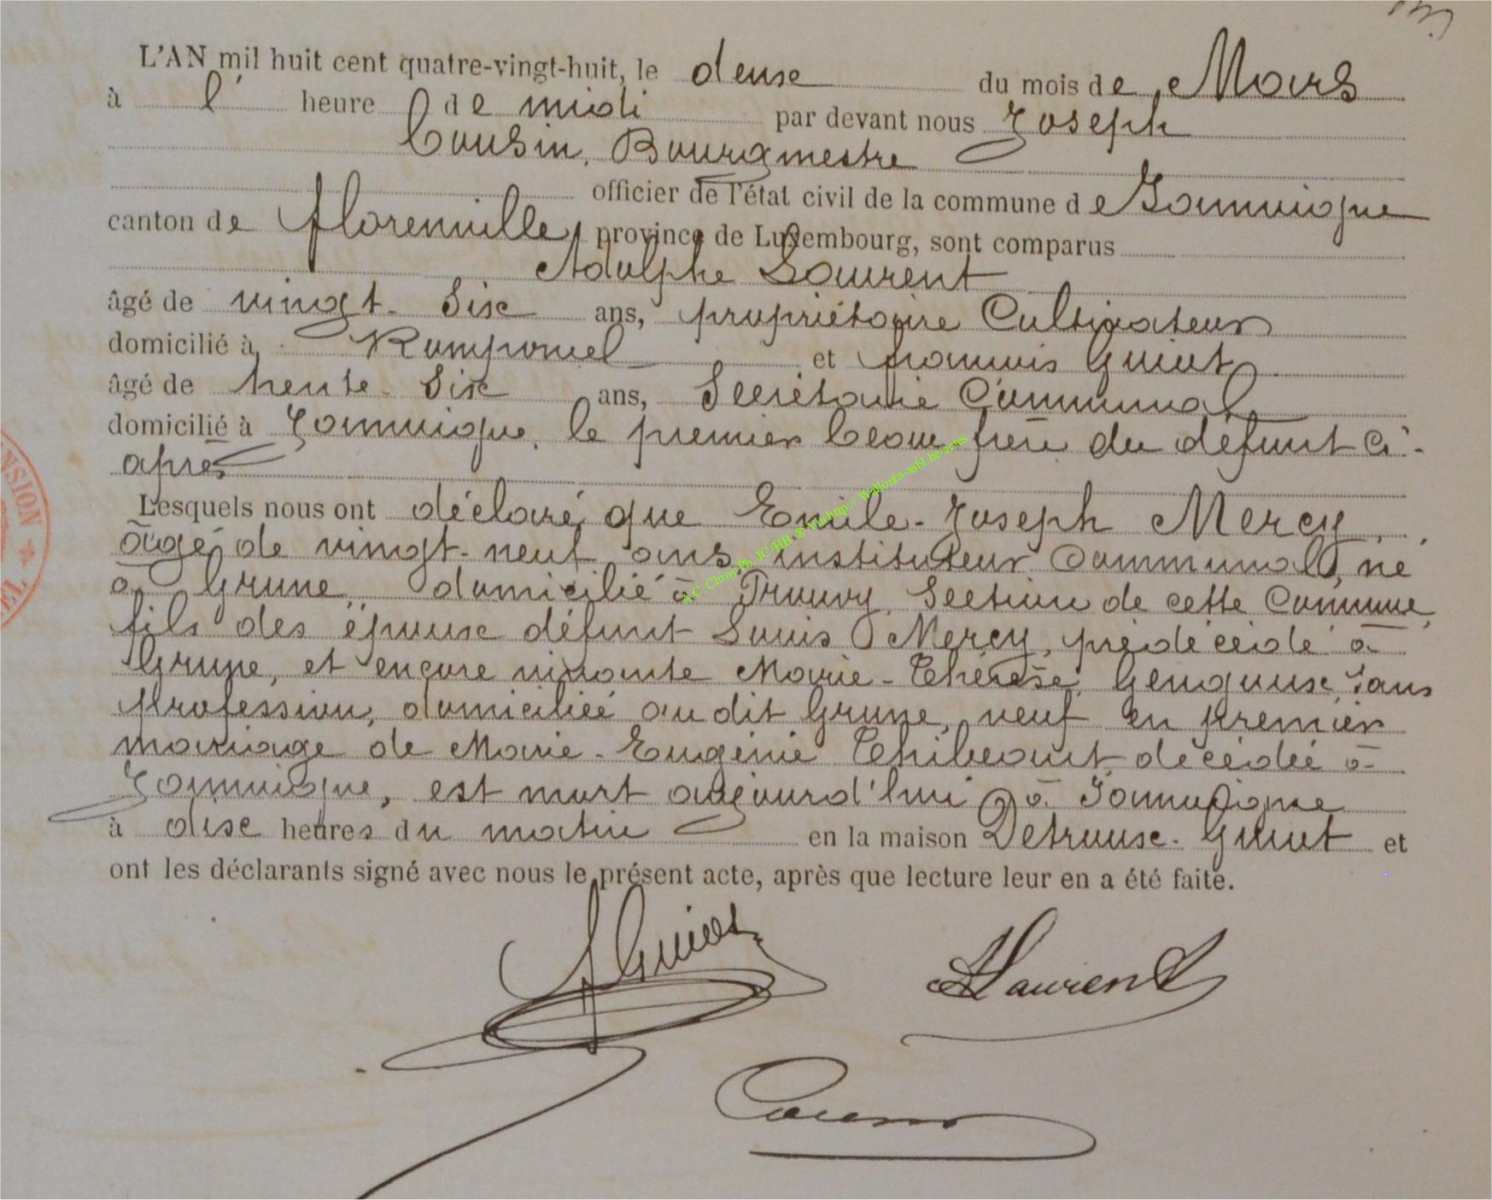 L'AN mil huit cent quatre-vingt-huit, le deuse du mois de Mars
à l' heure de midi par devant nous Joseph
Cousin, Bourgmestre
officier de l'état civil de la commune de Jamoigne
canton de Florenville, province de Luxembourg, sont comparus
Adolphe Laurent
âgé de vingt-six ans, propriétaire Cultivateur
domicilié à Romponcel et françois Guiot
âgé de trente-six ans, Secrétaire Communal
domicilié à Jamoigne, le premier beau frère du défunt ci-
après
Lesquels nous ont déclaré, que Emile-Joseph Mercy,
âgé de vingt-neuf ans, instituteur Communal, né
à Grune, domicilié à Prouvy, Section de cette Commune,
fils des époux défunt Louis Mercy, prédécédé à
Grune, et encore vivante Marie-Thérèse, sans
profession, domiciliée au dit Grune, veuf en premier
mariage de Marie-Eugénie Thibeaut décédée à
Jamoigne, est mort aujourd'hui à Jamoigne
à dix heures du matin en la maison Detroux-Guiot et
ont les déclarants signé avec nous le présent acte, après que lecture leur en a été faite.
F Guiot
A Laurent
Cousin
NSION